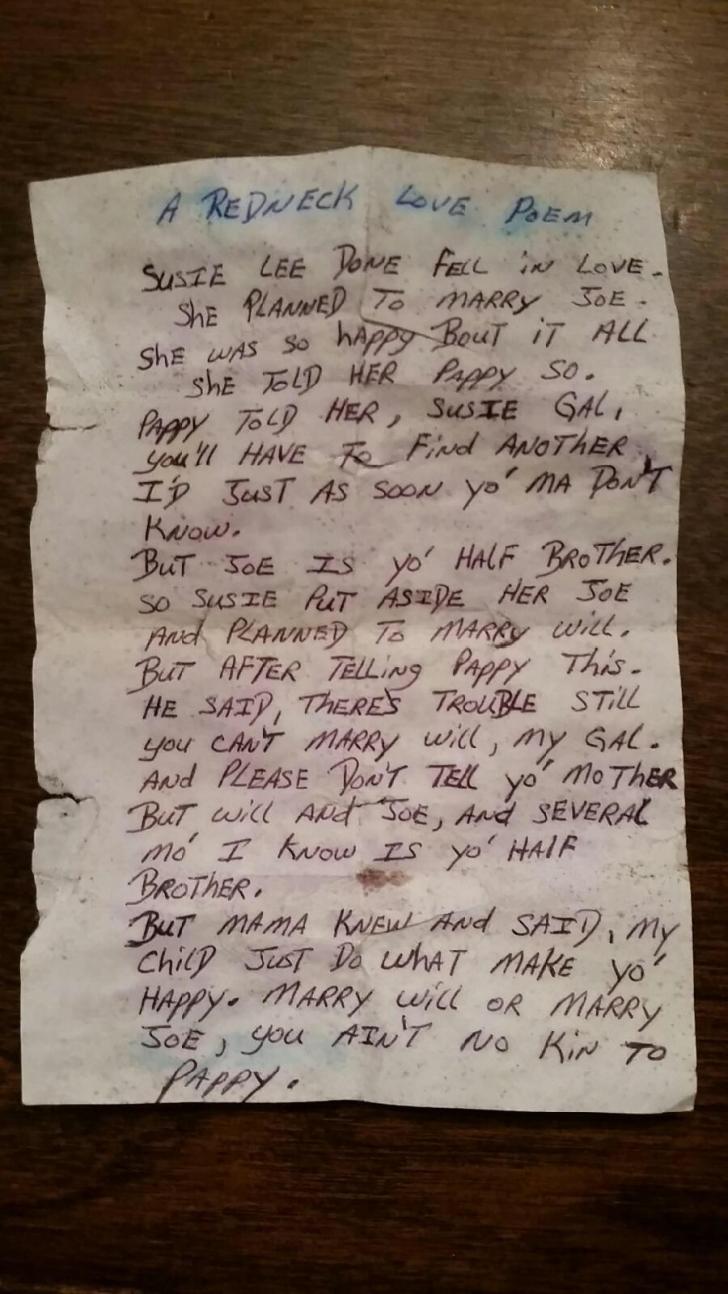 A REDNECK LOVE POEM
SUSIE LEE DONE FELL iN LOVE.
ShE PLANNED TO MARRY JOE.
ShE WAS SO hAPPY BOUT iT ALL
ShE TOLD HER PAPPY SO.
PAPPY TOLD HER, SUSIE GAL,
you'll HAVE To FiNd ANOTHER
I'D JUST AS SOON yo' MA DON'T
KNOW.
BUT JOE IS yo' HALF BROTHER.
SO SUSIE PUT ASIDE HER JOE
ANd PLANNED TO MARRY WiLL.
BUT AFTER TELLiNg PAPPY ThiS.
HE SAID, THERE'S TROUBLE STiLL
you CAN'T MARRY WiLL, MY GAL.
AND PLEASE DON'T TELL yo' MOTHER
BUT WiLL AND JOE, ANd SEVERAL
MO' I KNOW IS yo' HALF
BROTHER.
BUT MAMA KNEW ANd SAID, MY
ChiLD JUST DO WHAT MAKE yo'
HAPPY. MARRY WiLL OR MARRY
JOE, you AIN'T NO KiN TO
PAPPY.